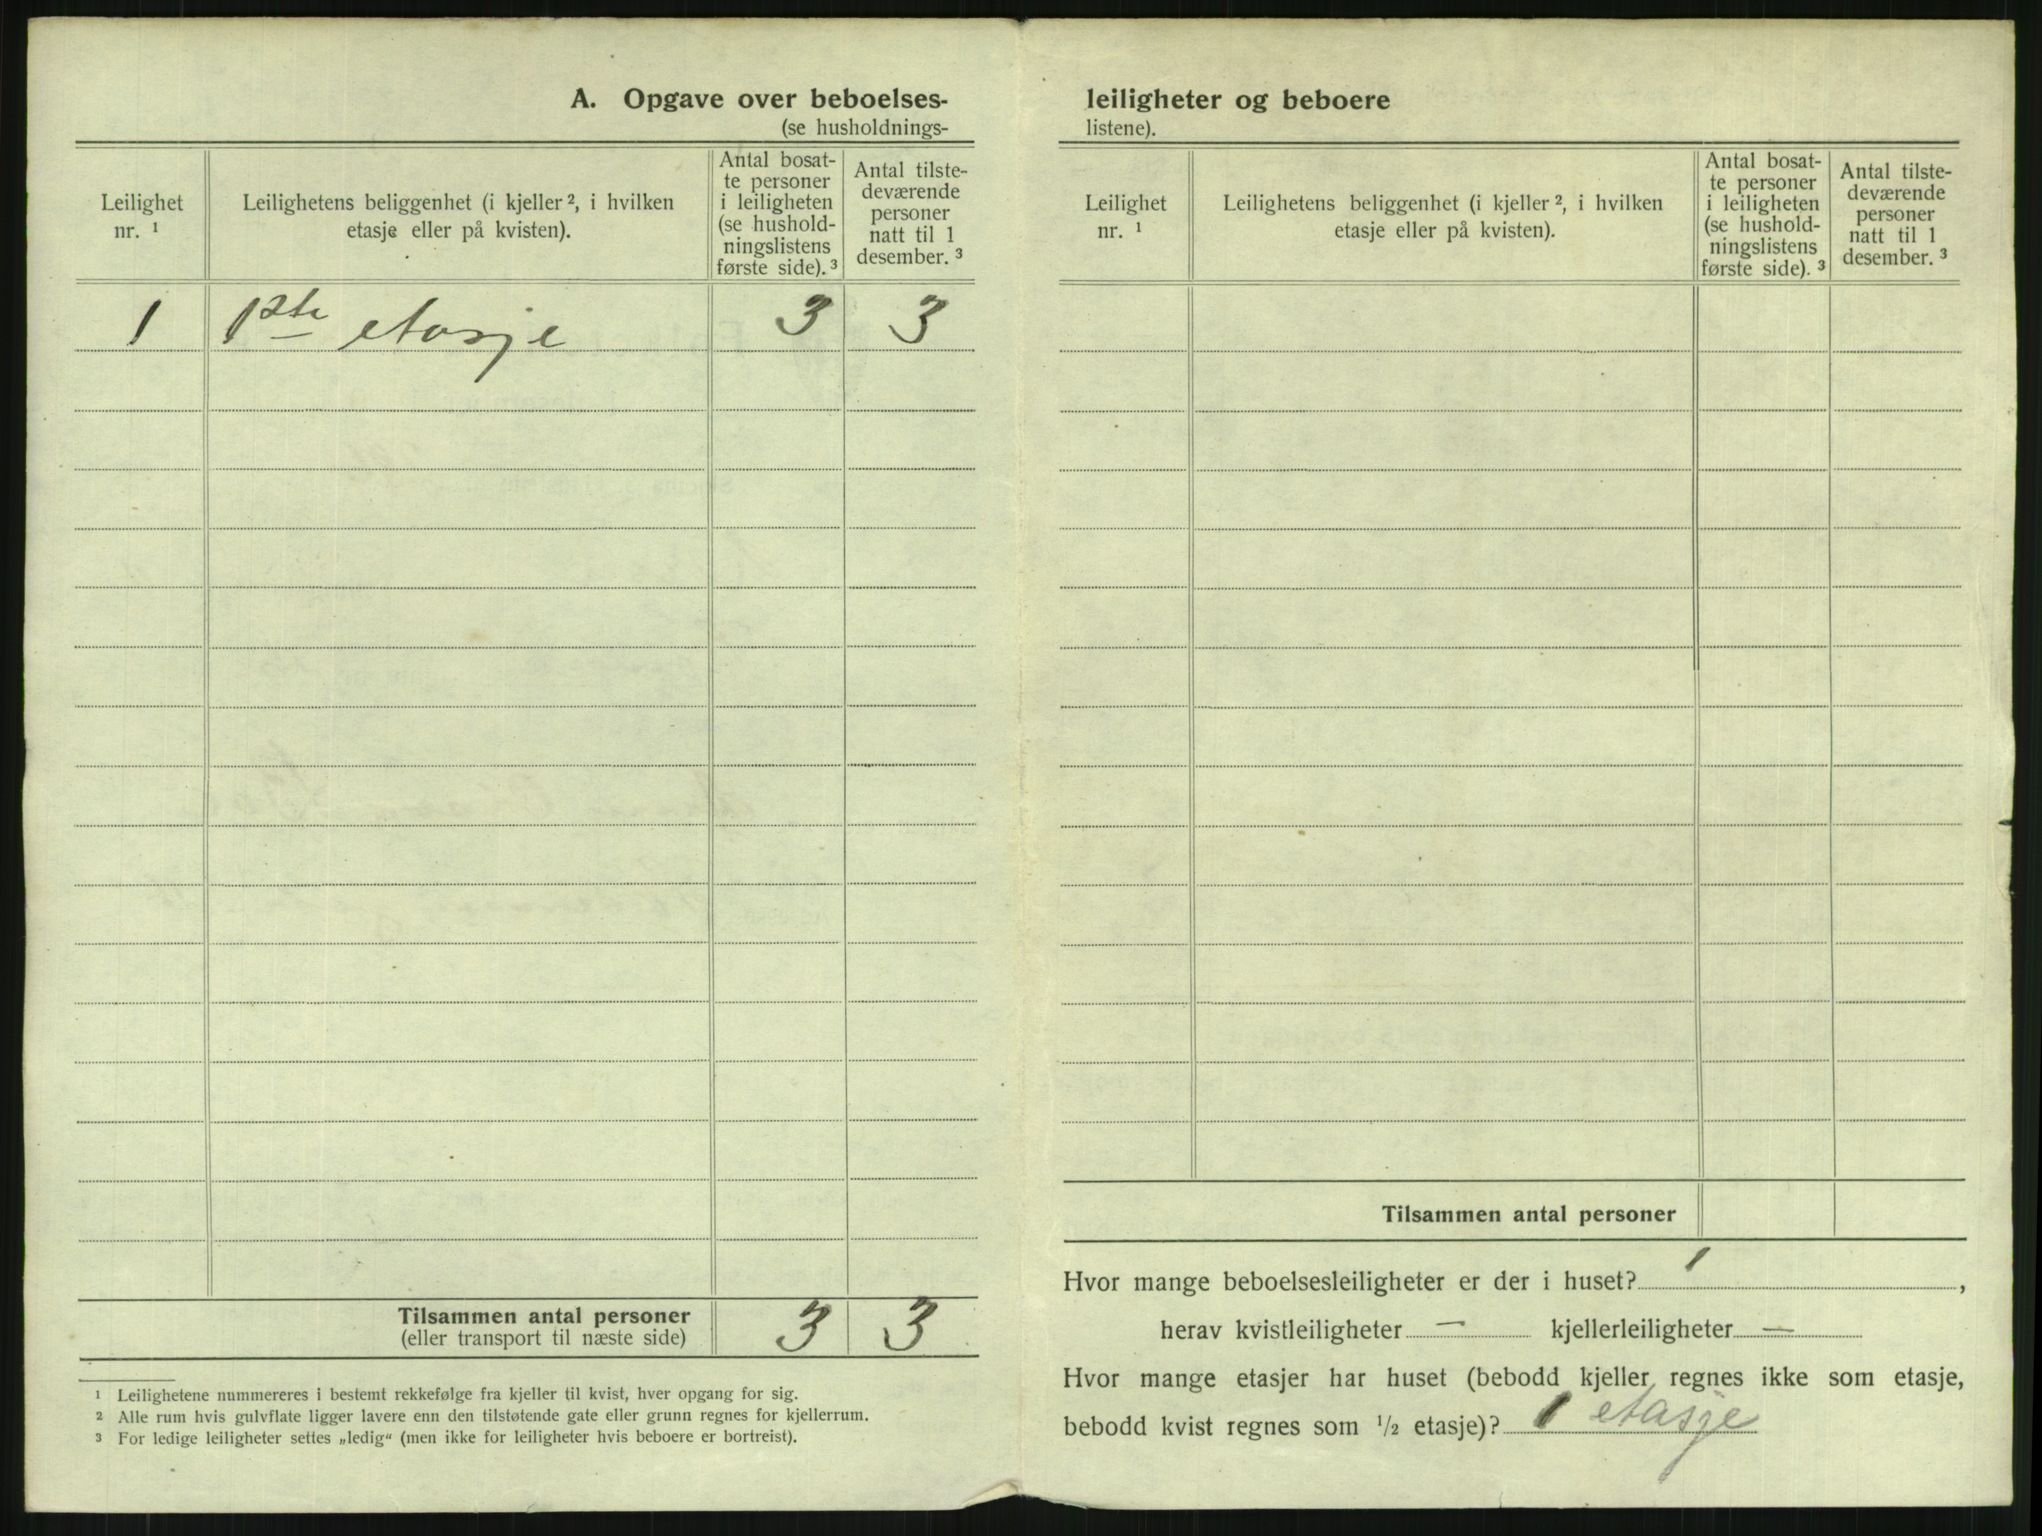 A. Opgave over beboelses-
(se husholdnings-
Leilighet
nr. ¹
Leilighetens beliggenhet (i kjeller ², i hvilken
etasje eller på kvisten).
Antal bosat-
te personer
i leiligheten
(se hushold-
ningslistens
første side). ³
Antal tilste-
deværende
personer
natt til 1
desember. ³
1 1ste etasje 3 3
Tilsammen antal personer
(eller transport til næste side)
3 3
¹ Leilighetene nummereres i bestemt rekkefølge fra kjeller til kvist, hver opgang for sig.
² Alle rum hvis gulvflate ligger lavere enn den tilstøtende gate eller grunn regnes for kjellerrum.
³ For ledige leiligheter settes „ledig“ (men ikke for leiligheter hvis beboere er bortreist).
leiligheter og beboere
listene).
Leilighet
nr. ¹
Leilighetens beliggenhet (i kjeller ², i hvilken
etasje eller på kvisten).
Antal bosat-
te personer
i leiligheten
(se hushold-
ningslistens
første side). ³
Antal tilste-
deværende
personer
natt til 1
desember. ³
Tilsammen antal personer
Hvor mange beboelsesleiligheter er der i huset? 1 ,
herav kvistleiligheter — kjellerleiligheter —
Hvor mange etasjer har huset (bebodd kjeller regnes ikke som etasje,
bebodd kvist regnes som ½ etasje)? 1 etasje